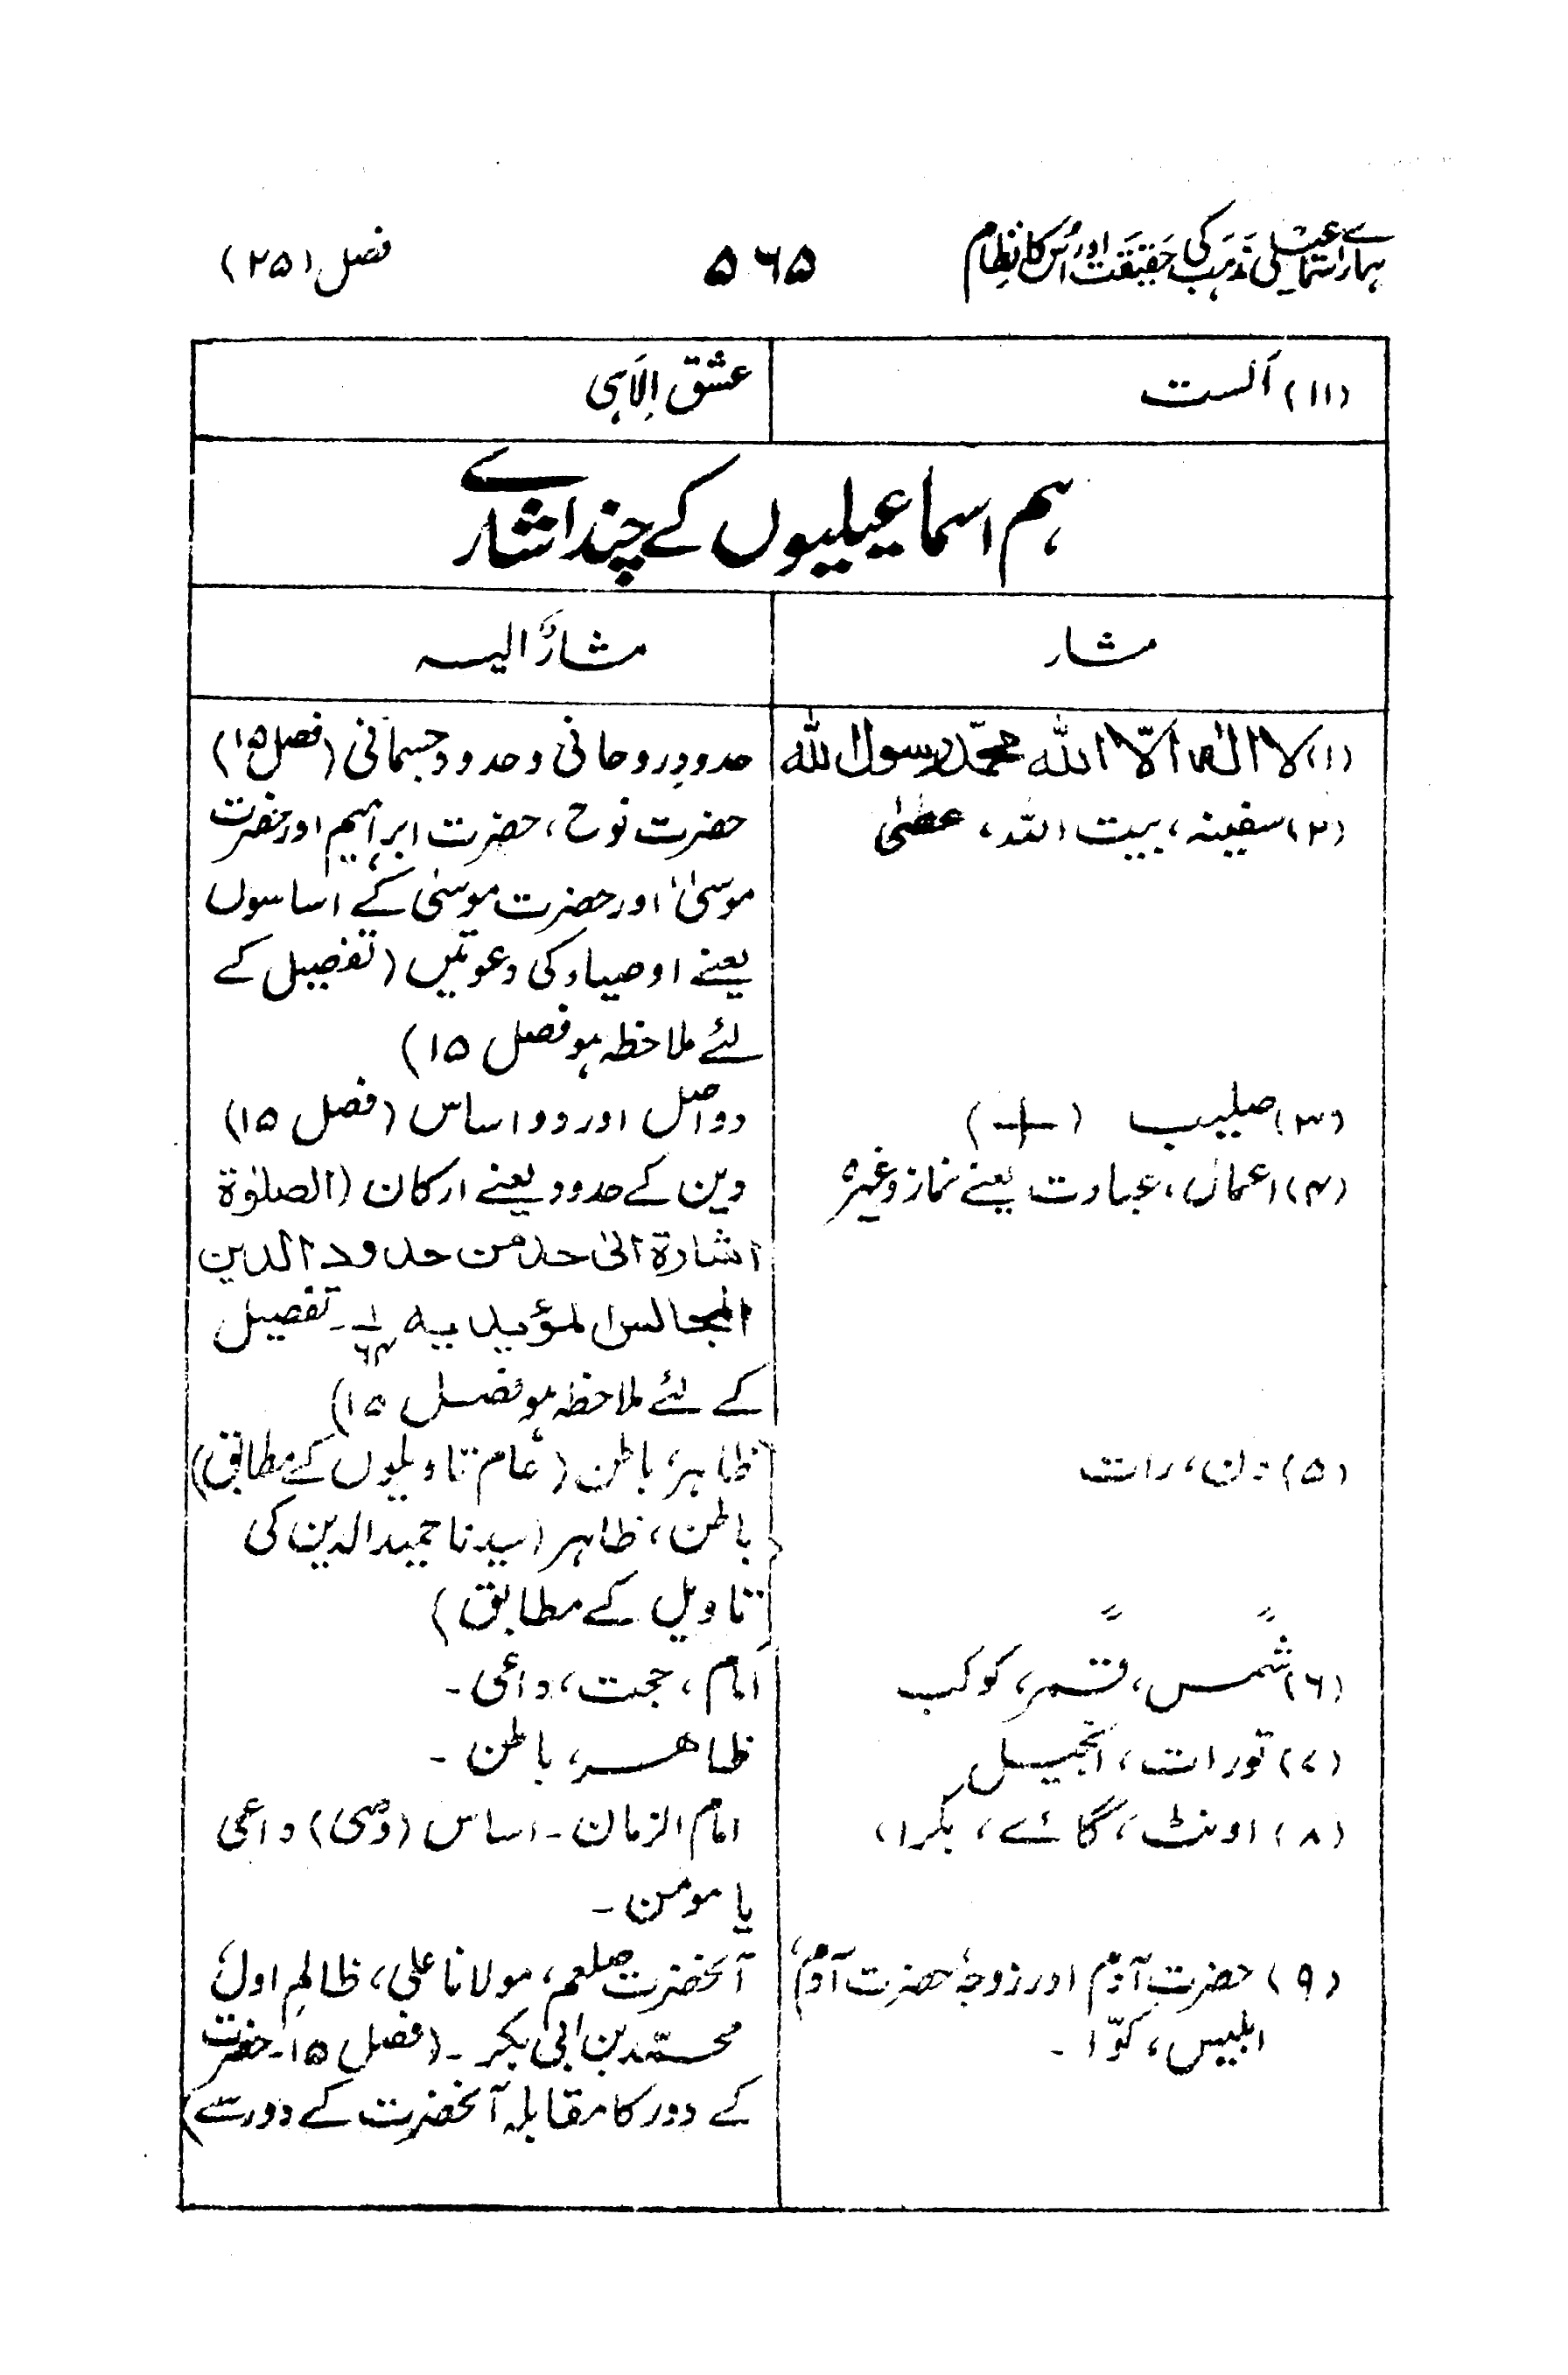 ہمارے اسماعیلی مذہب کی حقیقت اور اُس کا نظام ۵۶۵ فصل (۲۵)
(۱۱) اَلست عشق اِلٰہی
ہم اسماعیلیوں کے چند اشارے
مشار مشارٌ الیہ
(۱) لا الٰہ الّا اللہ محمّد رسول اللہ حدودِ روحانی و حدود جسمانی (فصل ۱۵)
(۲) سفینہ، بیت اللہ، عصیٰ حضرت نوح، حضرت ابراہیم اور حضرت
موسیٰ اور حضرت موسیٰ کے اساسوں
یعنے اوصیاء کی دعوتیں (تفصیل کے
لئے ملاحظہ ہو فصل ۱۵)
(۳) صلیب (┼) دو اصل اور دو اساس (فصل ۱۵)
(۴) اعمال، عبادت یعنے نماز وغیرہ دین کے حدود یعنے ارکان (الصلوٰۃ
اشارۃ الیٰ حد من حدود الدین
المجالس المؤیدیہ ۱/۶۴ ۔ تفصیل
کے لئے ملاحظہ ہو فصل ۱۵)
(۵) دن، رات ظاہر، باطن (عام تاویلوں کے مطابق)
باطن، ظاہر (سیدنا حمید الدین کی
تاویل کے مطابق)
(۶) شمس، قمر، کوکب امام، حجت، داعی ۔
(۷) تورات، انجیل ظاہر، باطن ۔
(۸) اونٹ، گائے، بکرا، امام الزمان ۔ اساس (وصی) داعی
یا مومن ۔
(۹) حضرت آدم اور زوجۂ حضرت آدم، آنحضرت صلعم، مولانا علی، ظالمِ اول،
ابلیس، کوّا ۔ محمّد بن ابی بکر ۔ (فصل ۱۵ ۔ حضرت
کے دور کا مقابلہ آنحضرت کے دور سے)